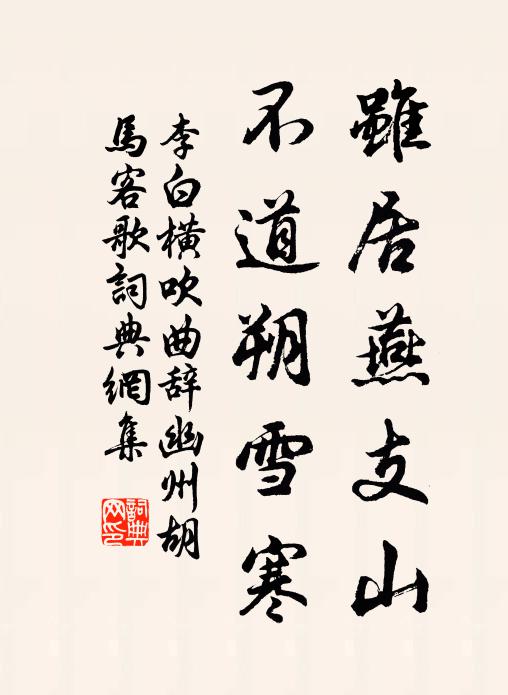 雖居燕支山
不道朔雪寒
李白橫吹曲辞幽州胡
馬客歌詞典網集
詞典
网印